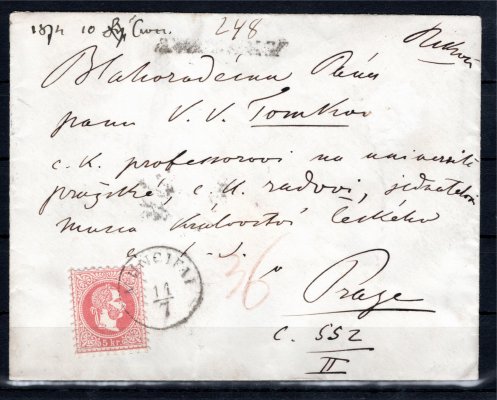 1874 10
248
Blahorodému Pánu
panu V. V. Tomkovi
c. k. professorovi na universitě
pražské, c. k. radovi, jednateli
musea Království Českého
36
Prage
c. 552
II
14
7
5 kr.